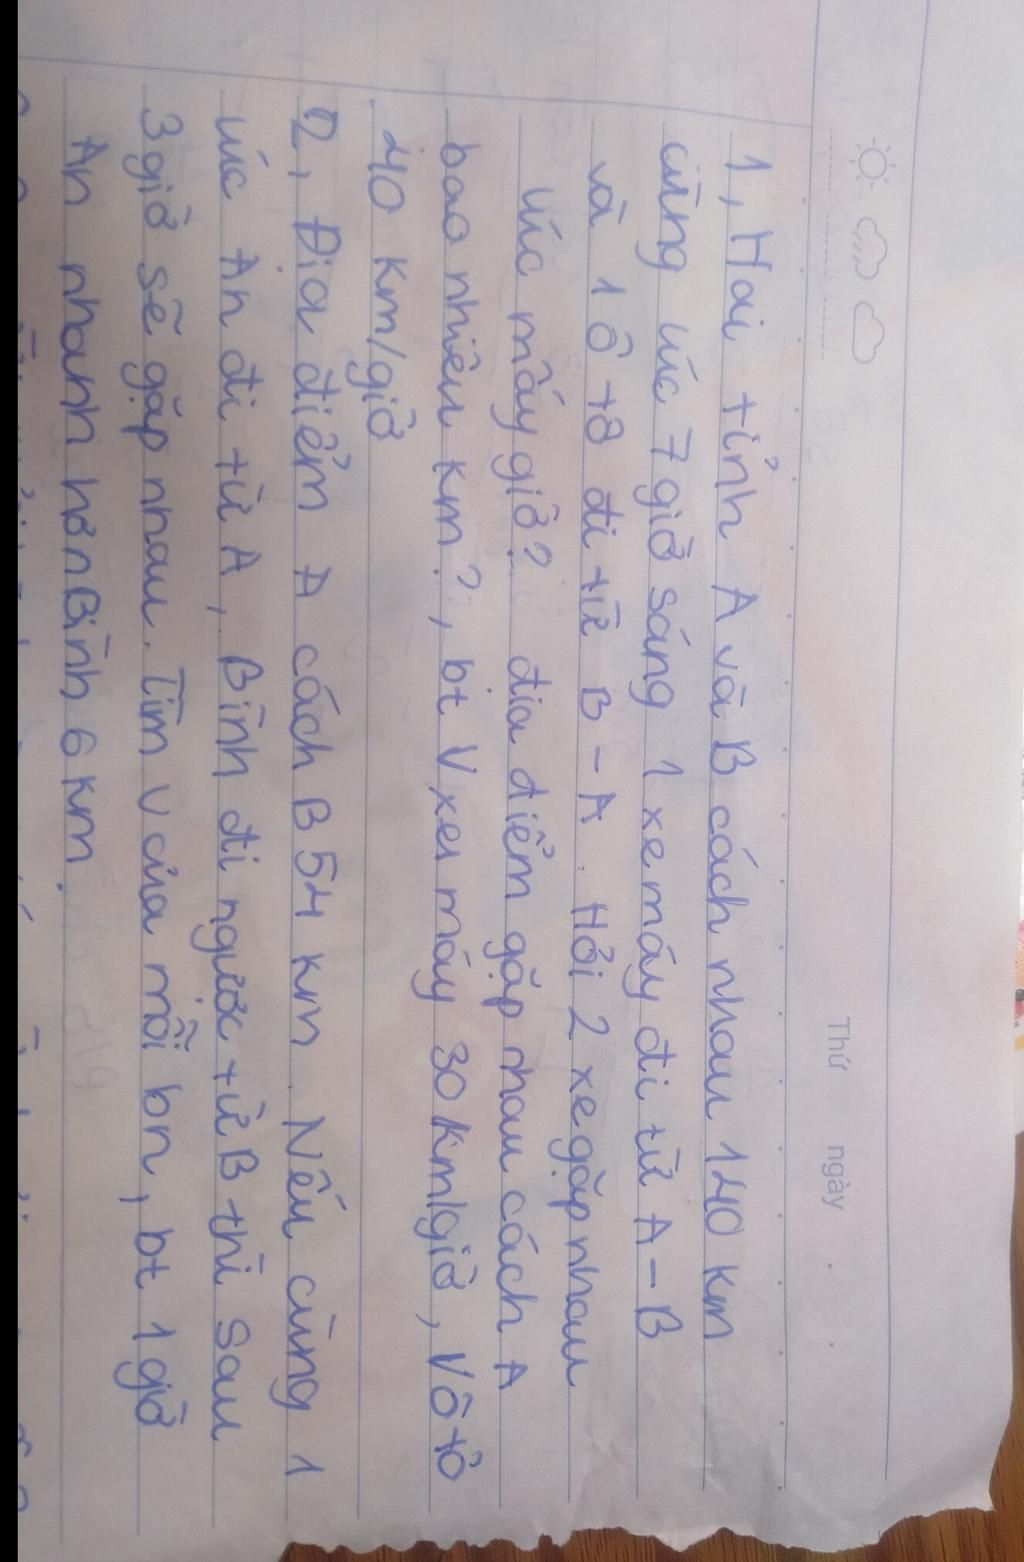 Thứ ngày
1, Hai tỉnh A và B cách nhau 140 km
cùng lúc 7 giờ sáng 1 xe máy đi từ A - B
và 1 ô tô đi từ B - A. Hỏi 2 xe gặp nhau
lúc mấy giờ? địa điểm gặp nhau cách A
bao nhiêu km?, bt V xe máy 30 km/giờ, V ô tô
40 km/giờ
2, Địa điểm A cách B 54 km. Nếu cùng 1
lúc An đi từ A, Bình đi ngược từ B thì sau
3 giờ sẽ gặp nhau. Tìm v của mỗi bn, bt 1 giờ
An nhanh hơn Bình 6 km.